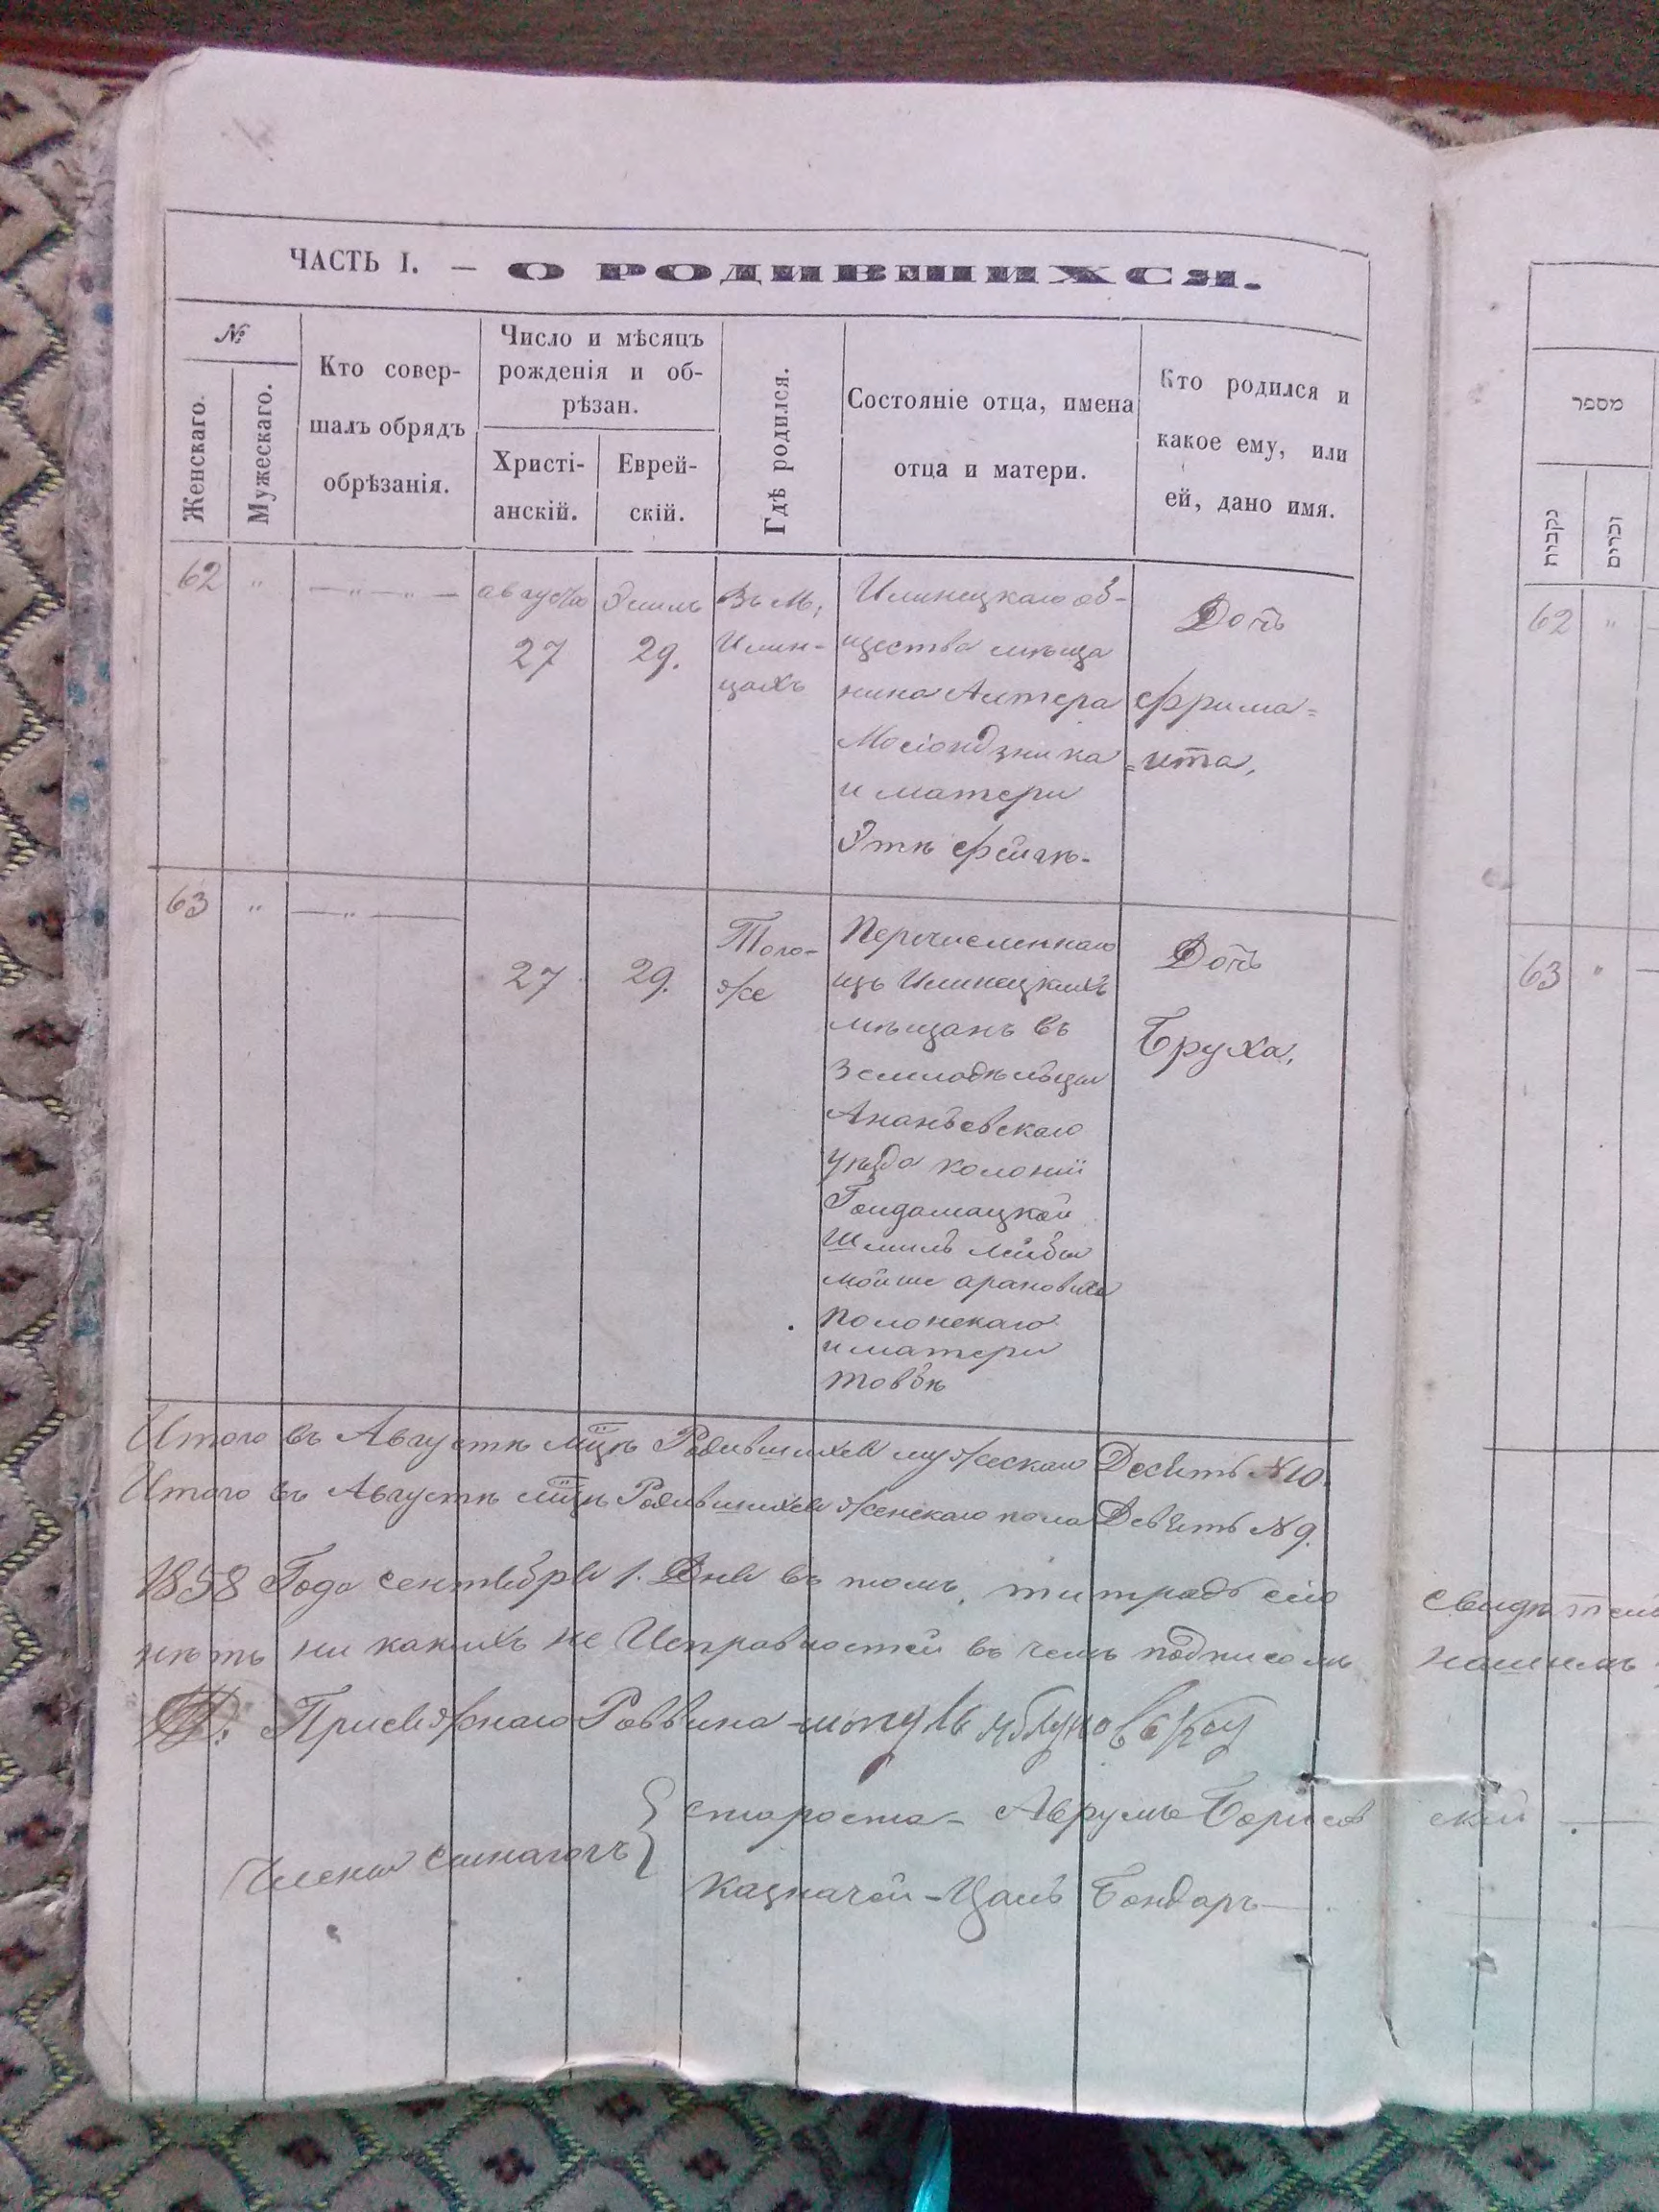 ЧАСТЬ I. — О РОДИВШИХСЯ.
№
Женскаго.
Мужескаго.
Кто совер-
шалъ обрядъ
обрѣзанія.
Число и мѣсяцъ
рожденія и об-
рѣзан.
Христі-
анскій.
Еврей-
скій.
Гдѣ родился.
Состояніе отца, имена
отца и матери.
Кто родился и
какое ему, или
ей, дано имя.
62 „ — „ — „ —
августа
27
Элиль
29.
Въ М.
Илин-
цахъ
Илинецкаго об-
щества мѣща
нина Алтера
и матери
Этѣ Фейгѣ.
Дочь
Фрима=
=ита,
63 „ — „ —
27
29.
Того-
же
Перечисленнаго
изъ Илинецкихъ
мѣщанъ въ
Земледѣльцы
Ананьевскаго
уѣзда колоніи
Гайдамацкой
Шмиль Лейбы
Мойше Арановича
Полонскаго
и матери
Товбѣ
Дочь
Бруха,
Итого въ Августѣ мцѣ Родившихся мужескаго Десять № 10.
Итого въ Августѣ мцѣ Родившихся женскаго пола Девять № 9.
1858 Года Сентября 1. Дня въ томъ, титрадь сію
нѣтъ ни какихъ не Исправностей въ чемъ подписомъ
Присяжнаго Раввина
Члены синагогъ {
староста – Аврумъ Борисов ский
казначей – Цаль Бондаръ
מספר
נקבות
זכרים
62 „
63 „